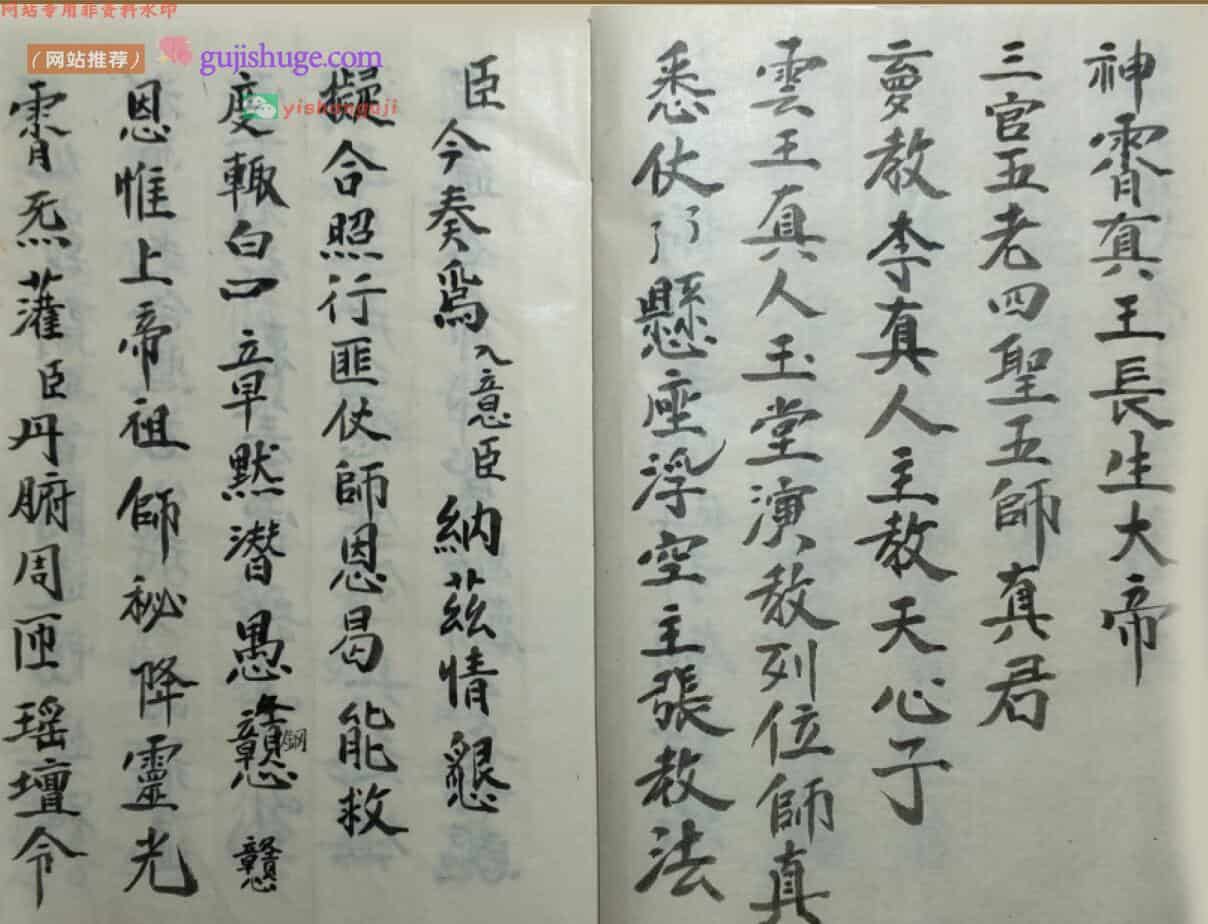 网站专用非资料水印
（网站推荐）
gujishuge.com
yishanguji
神霄真王長生大帝
三官五老四聖五師真君
教李真人主教天心子
雲王真人玉堂演教列位師真
悉仗了了懸座浮空主張教法
臣今奏爲入意臣納茲情懇
擬合照行匪仗師恩曷能救
度輙白一章默潛愚戇
戇
恩惟上帝祖師秘降靈光
霄炁灌臣丹腑周匝瑶壇令